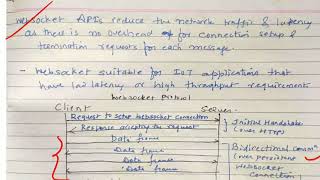 WebSocket APIs reduce the network traffic & latency
as there is no overhead for connection setup &
termination requests for each message.
- Websocket suitable for IoT applications that
have low latency or high throughput requirement
WebSocket Protocol
Client Server
Request to setup WebSocket Connection
Response accepting the request
Initial Handshake
(over HTTP)
Data frame
Data frame
Data frame
Data frame
Bidirectional Commn
(over persistent
WebSocket
Connection)